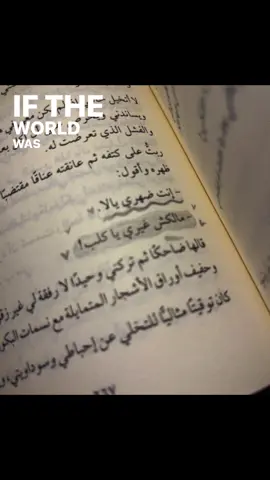 IF THE
WORLD
WAS
لا أتخيل
ويساندني
والفشل الذي تعرضت له
ربتُّ على كتفه ثم عانقته عناقًا مقتضبًا
ظهره وأقول:
- إنت ضهري يالا.
- مالكش غيري يا كلب!
قالها ضاحكًا ثم تركني وحيدًا لا رفقة لي غير
وحفيف أوراق الأشجار المتمايلة مع نسمات
كان توقيتًا مثاليًّا للتخلي عن إحباطي وسوداويتي،